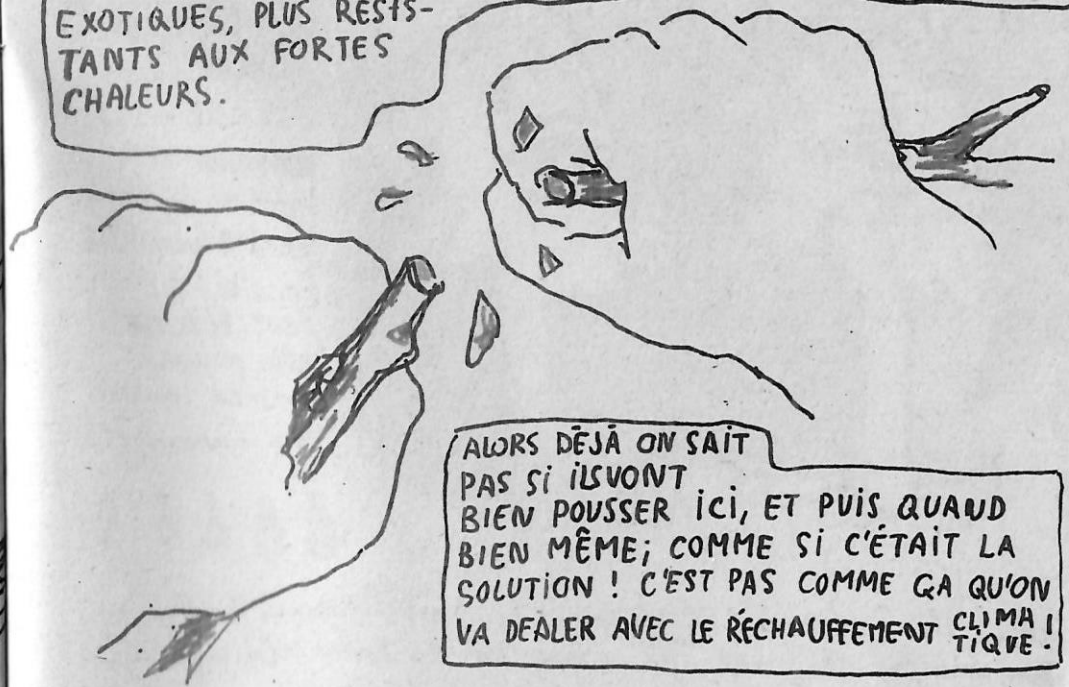 EXOTIQUES, PLUS RÉSIS-
TANTS AUX FORTES
CHALEURS.
ALORS DÉJÀ ON SAIT
PAS SI ILS VONT
BIEN POUSSER ICI, ET PUIS QUAND
BIEN MÊME; COMME SI C'ÉTAIT LA
SOLUTION ! C'EST PAS COMME ÇA QU'ON
VA DEALER AVEC LE RÉCHAUFFEMENT CLIMA
TIQUE !